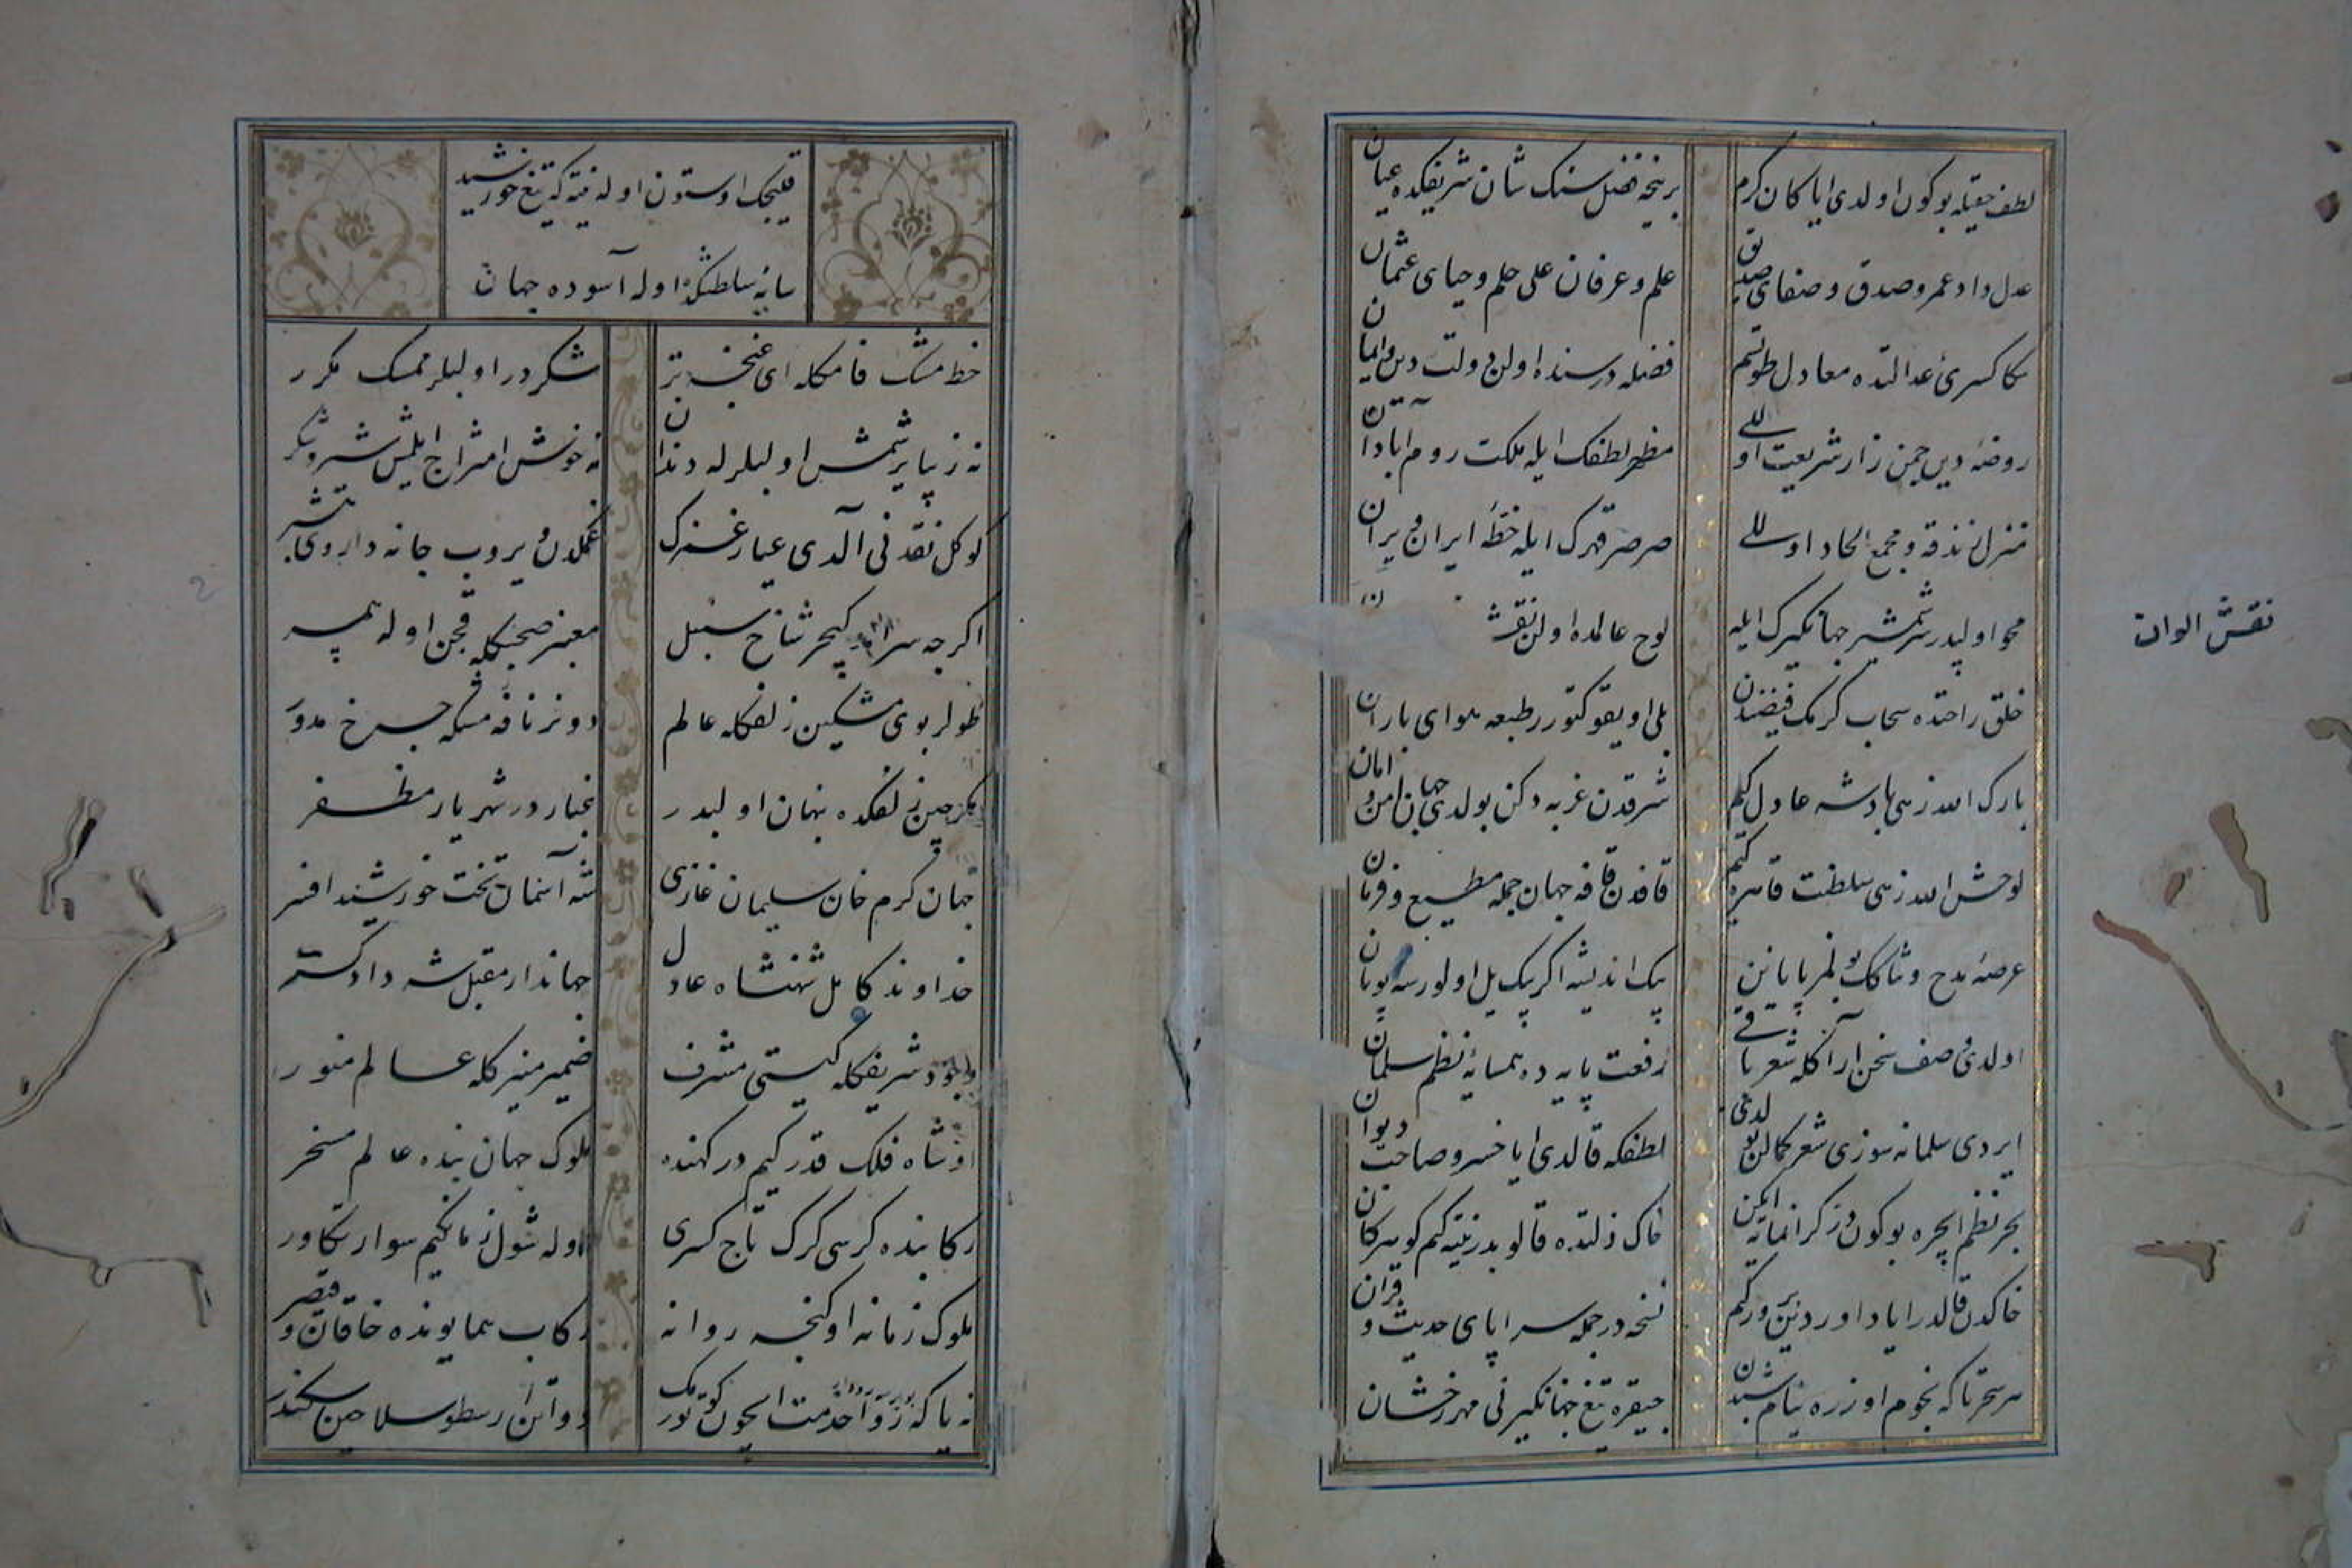 لطف حقیله بو کون اولدی ایا کان کرم
بر نیجه فضل سنک شان شریفکده عیان
عدل و داد عمر و صدق و صفای صدیق
علم و عرفان علی حلم و حیای عثمان
سکا کسری عدالتده معادل طوتسم
فضله در سنده اولن دولت دین و ایمان
روضهٔ دین چمن زار شریعت اوللی
مظهر لطفک ایله ملکت روم آبادان
منزل زندقه و مجمع الحاد اوللی
صرصر قهرک ایله خطهٔ ایران ویران
محو اولپدر شمشیر جهانکیرک ایله
لوح عالمده اولن نقش
نقش الوان
خلق راحتده سحاب کرمک فیضندن
بلی اویقو کتورر طبعه هوای باران
بارک الله زهی پادشه عادل کیم
شرقدن غربه دکن بولدی جهان امن و امان
لوحش الله زهی سلطنت قاهره کیم
قافدن قافه جهان جمله مطیع و فرمان
عرصهٔ مدح و ثناکک بولمز پایانین
پیک اندیشه اکر بیک یل اولورسه پویان
اولدی وصف سخن آراکله شعر باقی
رفعت پایه ده همسایهٔ نظم سلمان
ایردی سلمانه سوزی شعر کمالن بولدی
لطفکه قالدی ایا خسرو صاحب دیوان
بحر نظم ایچره بو کون در کرانمایه ایکن
خاک ذلتده قالوبدر نیته کیم کوهر کان
خاکدن قالدر ایا داور دین پرور کیم
نسخه در جمله سراپای حدیث و قرآن
هر سحر تا که نجوم اوزره نیام شبدن
چیقره تیغ جهانکیرنی مهر رخشان
قلیجک اوستون اوله نیته که تیغ خورشید
سایهٔ سلطنتکده اوله آسوده جهان
خط مشک فامکله ای غنچهٔ تر
شکردر اول لبلر ممسک مکرر
نه زیبا یرشمش اول لبلرله دندان
نه خوش امتزاج ایلمش شیر و شکر
کوکل نقدنی آلدی عیار غمزک
غمکدن ویروب جانه داروی
اکرچه سر چکر شاخ سنبل
معنبر صچکله قچن اوله همسر
طولر بوی مشکین زلفکله عالم
دونر نافه مشکه چرخ مدور
مکر چین زلفکده پنهان اولپدر
غبار در شهریار مظفر
جهان کرم خان سلیمان غازی
شه آسمان تخت خورشید افسر
خداوند کامل شهنشاه عادل
جهاندار مقبل شه دادکستر
وجود شریفکله کیتی مشرف
ضمیر منیرکله عالم منور
او شاه فلک قدر کیم درکهنده
ملوک جهان بنده عالم مسخر
رکابنده کرسی کرک تاج کسری
اوله شول زمان کیم سوار تکاور
ملوک زمانه اوکنجه روانه
رکاب همایونده خاقان و قیصر
نه یا که زوار خدمت ایچون کوتورمک
دواتن ارسطو سلاحین سکندر